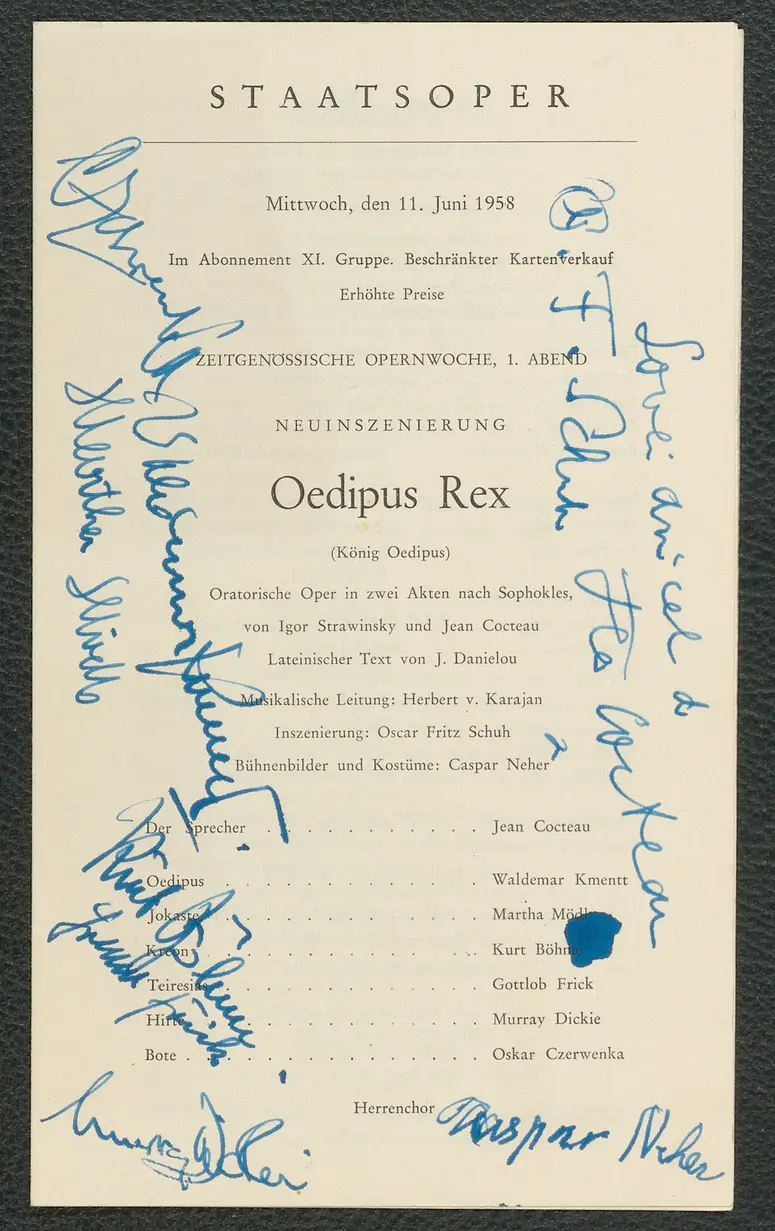 STAATSOPER
Mittwoch, den 11. Juni 1958
Im Abonnement XI. Gruppe. Beschränkter Kartenverkauf
Erhöhte Preise
ZEITGENÖSSISCHE OPERNWOCHE, 1. ABEND
NEUINSZENIERUNG
Oedipus Rex
(König Oedipus)
Oratorische Oper in zwei Akten nach Sophokles,
von Igor Strawinsky und Jean Cocteau
Lateinischer Text von J. Danielou
Musikalische Leitung: Herbert v. Karajan
Inszenierung: Oscar Fritz Schuh
Bühnenbilder und Kostüme: Caspar Neher
Der Sprecher . . . . . . . . . . . . Jean Cocteau
Oedipus . . . . . . . . . . . . Waldemar Kmentt
Jokaste . . . . . . . . . . . . Martha Mödl
Kreon . . . . . . . . . . . . Kurt Böhme
Teiresias . . . . . . . . . . . . Gottlob Frick
Hirte . . . . . . . . . . . . Murray Dickie
Bote . . . . . . . . . . . . Oskar Czerwenka
Herrenchor
Waldemar Kmentt
Martha Mödl
Kurt Böhme
Caspar Neher
Jean Cocteau